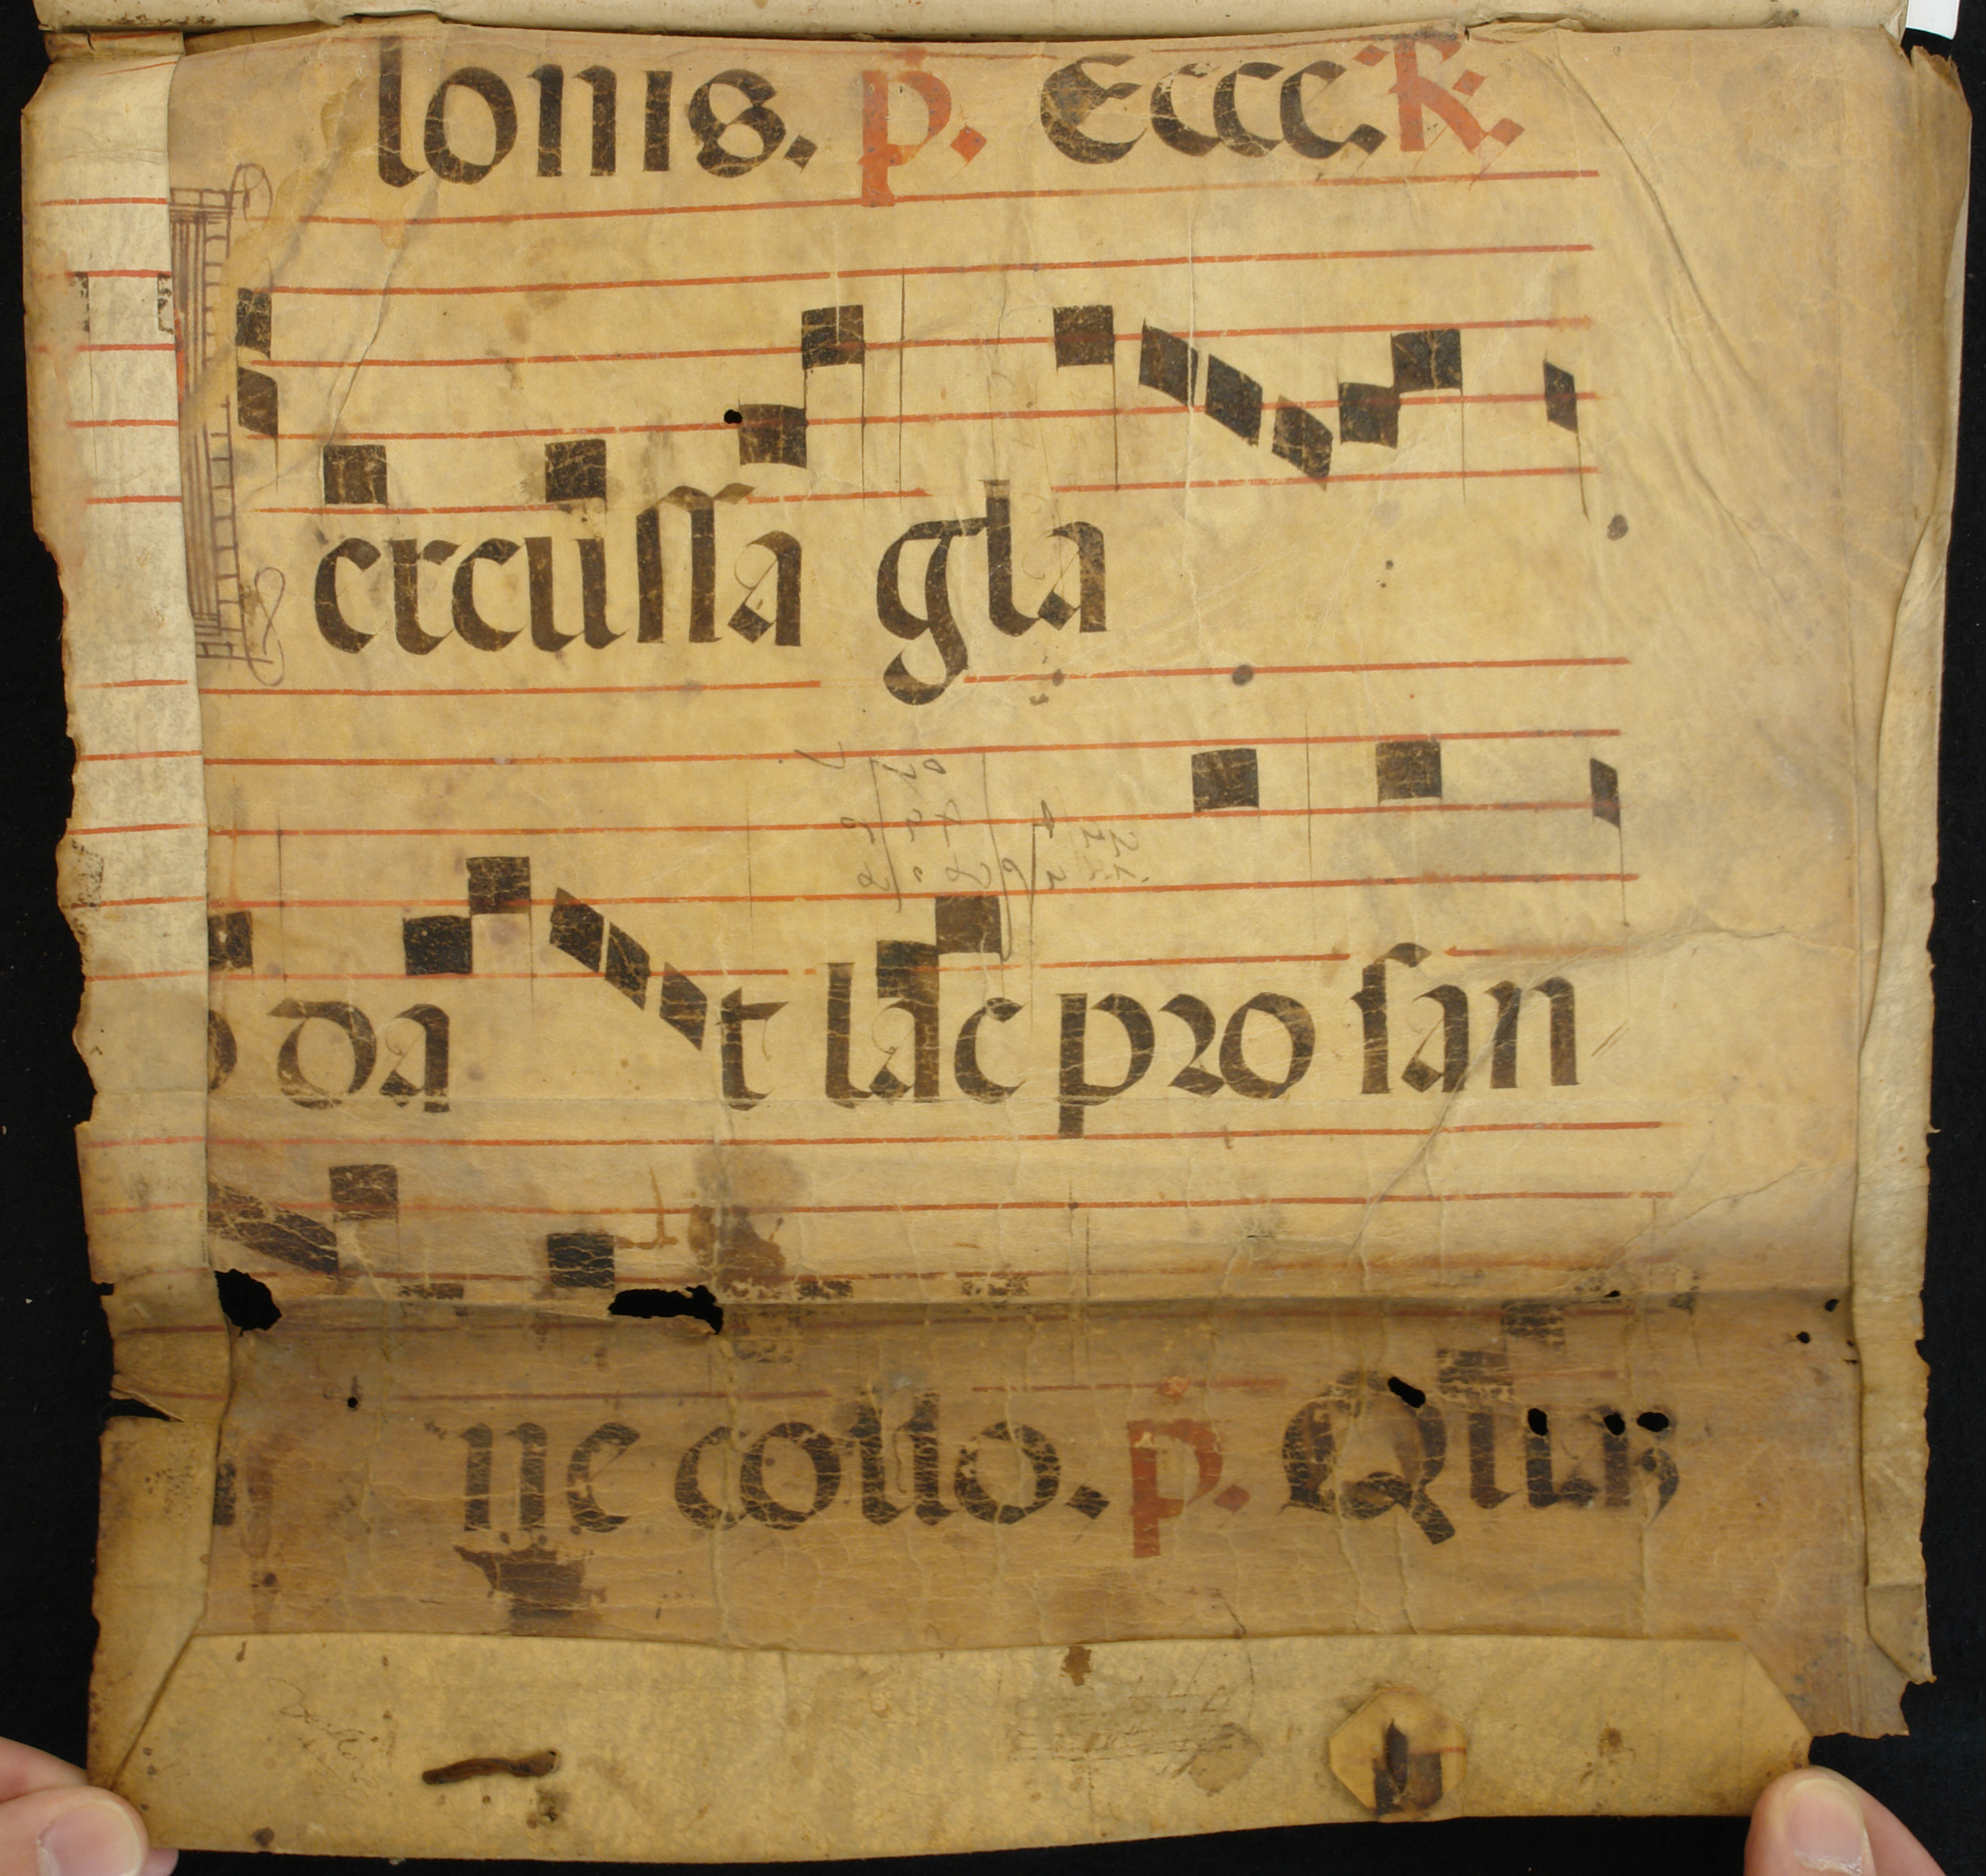 lonis. p. Ecce. R.
ercussa gla
o da t lac pro san
ne collo. p. Qui